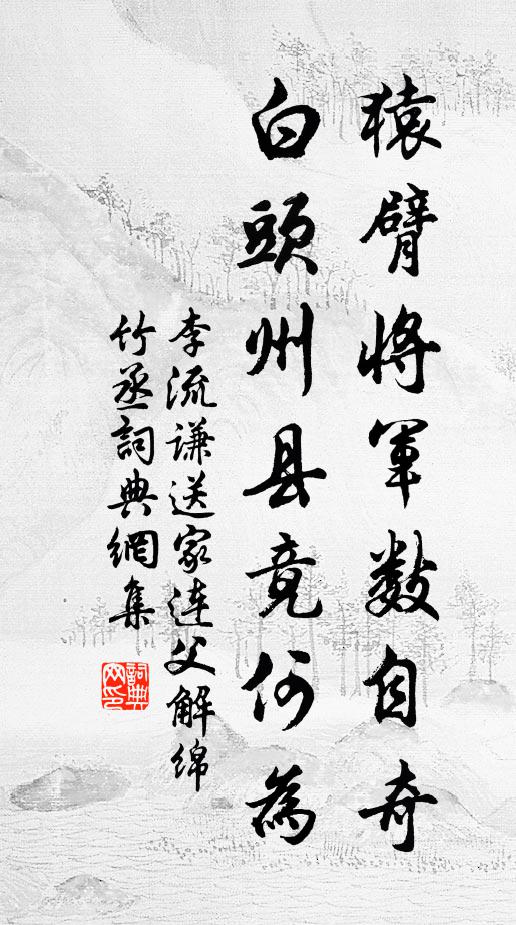 猿臂将軍数自奇
白頭州县竟何為
李流谦送家连父解绵
竹丞詞典網集
詞典网印